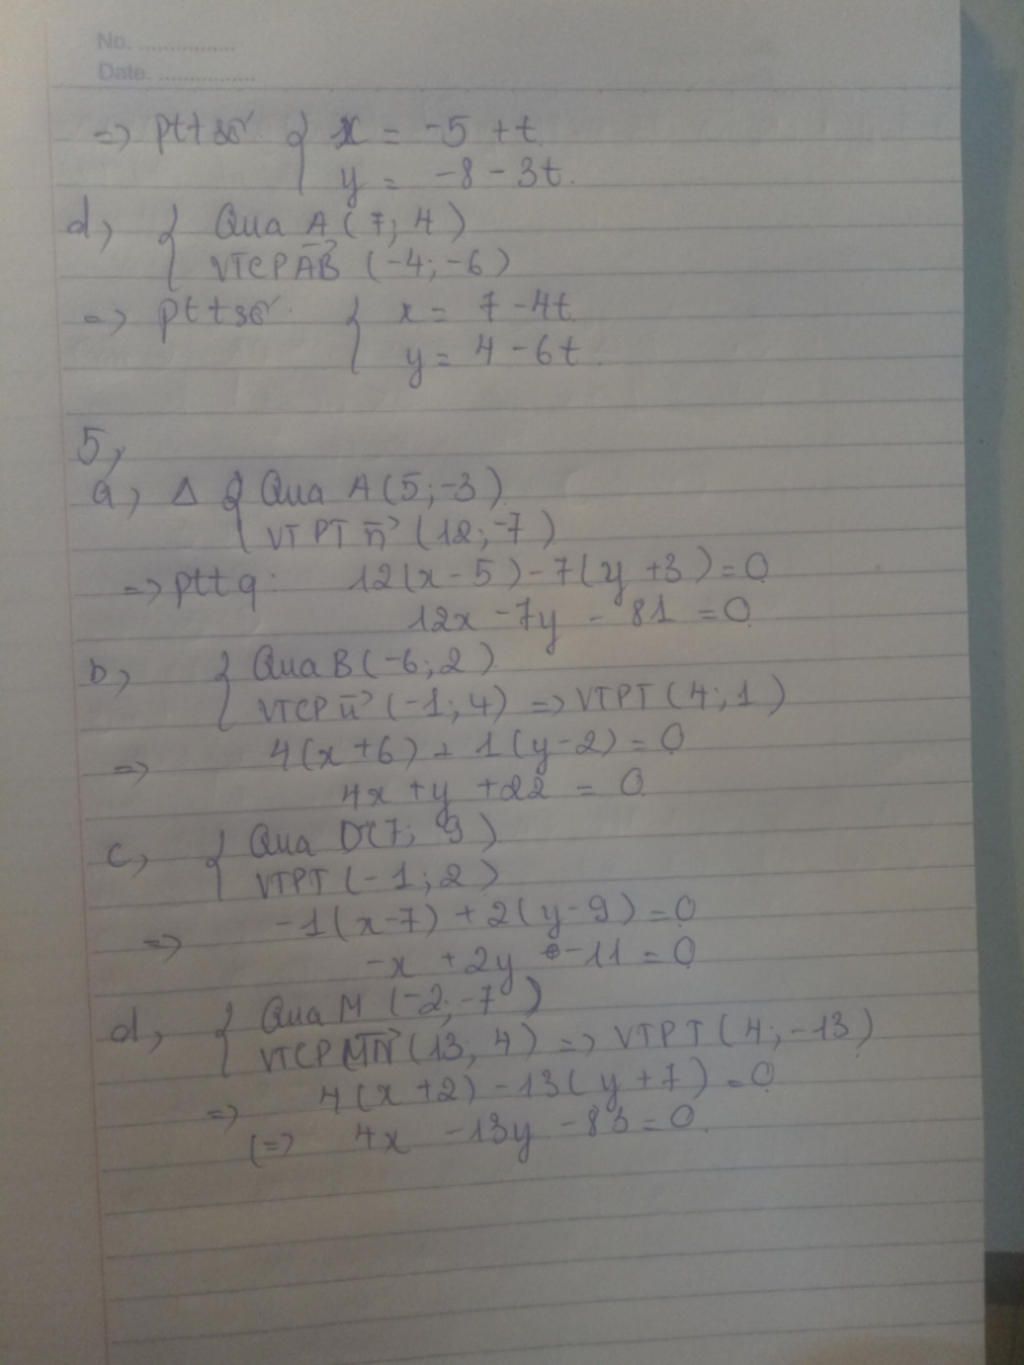 No. ................
Date. ................
=> pttsố { x = -5 + t
y = -8 - 3t.
d, { Qua A (7; 4)
VTCP AB→ (-4; -6)
=> pttsố { x = 7 - 4t
y = 4 - 6t.
5,
a, Δ { Qua A (5; -3)
VTPT n→ (12; -7)
=> pttq: 12(x - 5) - 7(y + 3) = 0
12x - 7y - 81 = 0
b, { Qua B (-6; 2)
VTCP u→ (-1; 4) => VTPT (4; 1)
=> 4(x + 6) + 1(y - 2) = 0
4x + y + 22 = 0
c, { Qua D(7; 9)
VTPT (-1; 2)
=> -1(x - 7) + 2(y - 9) = 0
-x + 2y - 11 = 0
d, { Qua M (-2; -7)
VTCP MN→ (13; 4) => VTPT (4; -13)
=> 4(x + 2) - 13(y + 7) = 0
(=> 4x - 13y - 83 = 0.